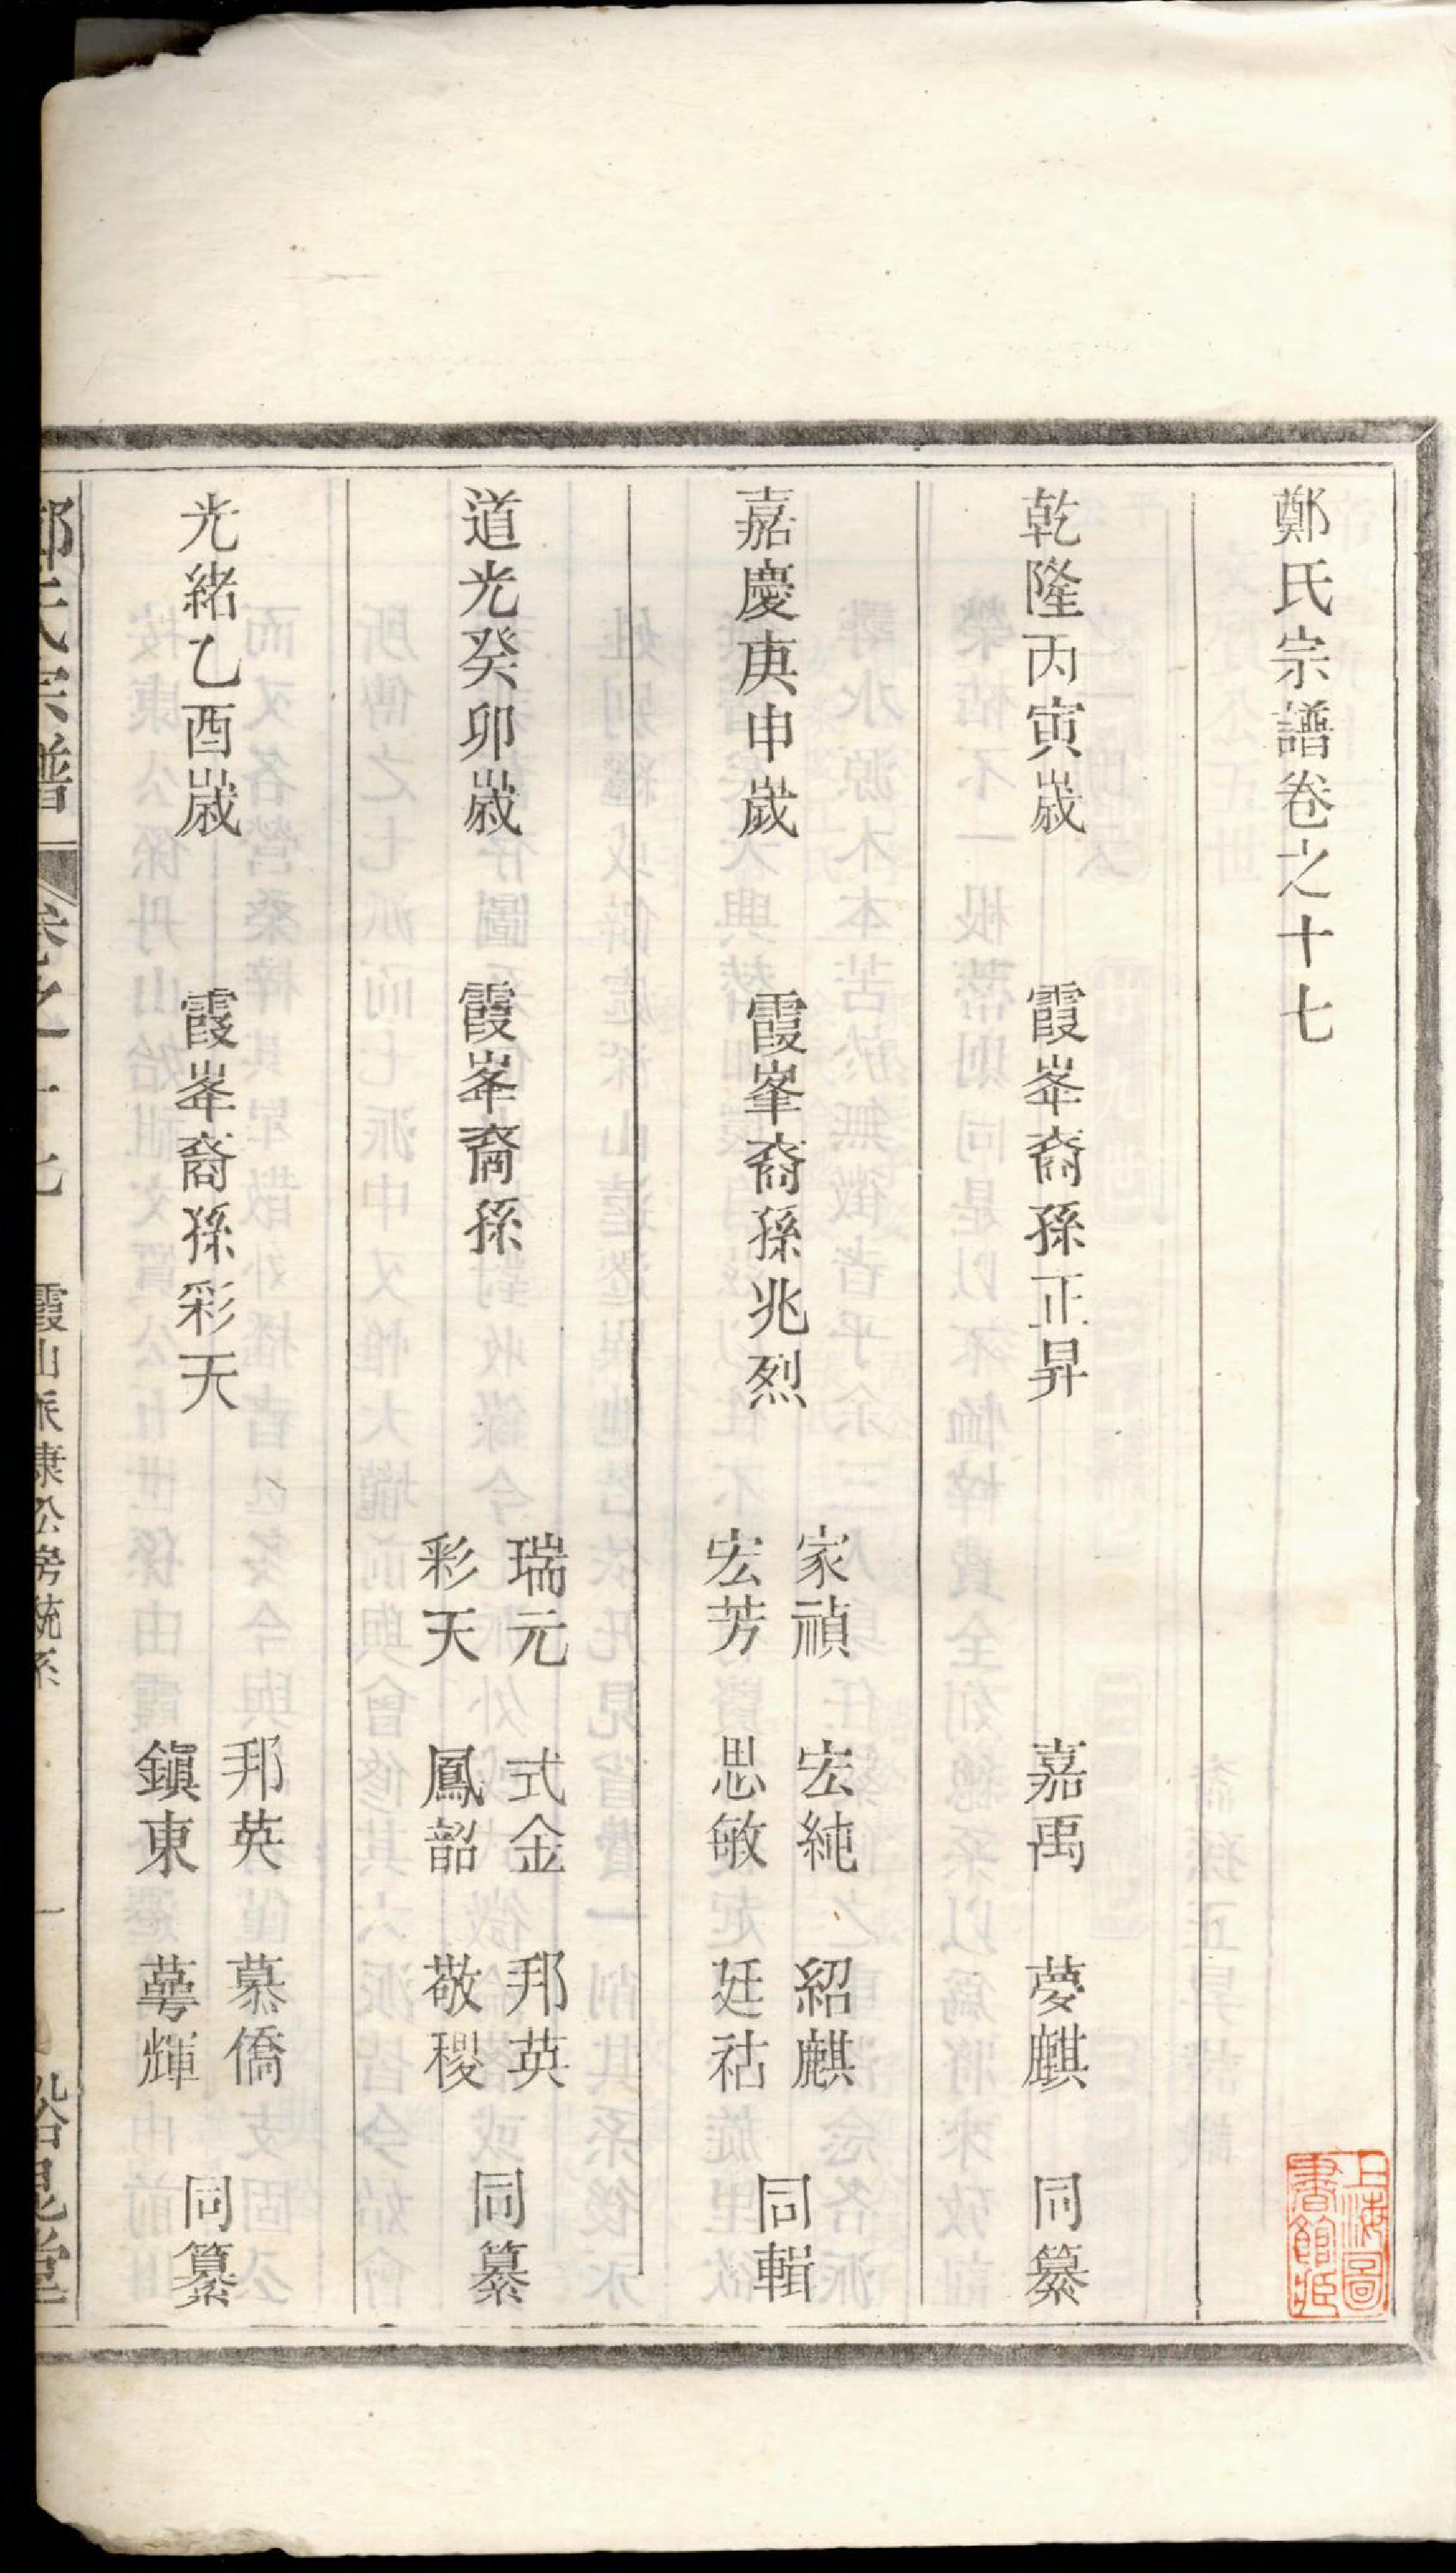 鄭氏宗譜卷之十七
乾隆丙寅歲 霞峯裔孫正昇 嘉禹 夢麒 同纂
嘉慶庚申歲 霞峯裔孫兆烈 家禎 宏純 紹麒 同輯
宏芳 思敏 廷祜
道光癸卯歲 霞峯裔孫 瑞元 式金 邦英 同纂
彩天 鳳韶 敬稷
光緒乙酉歲 霞峯裔孫彩天 邦英 慕僑 同纂
鎭東 萼輝
鄭氏宗譜 卷之十七 霞山派康公房統系 一
上海圖書館藏